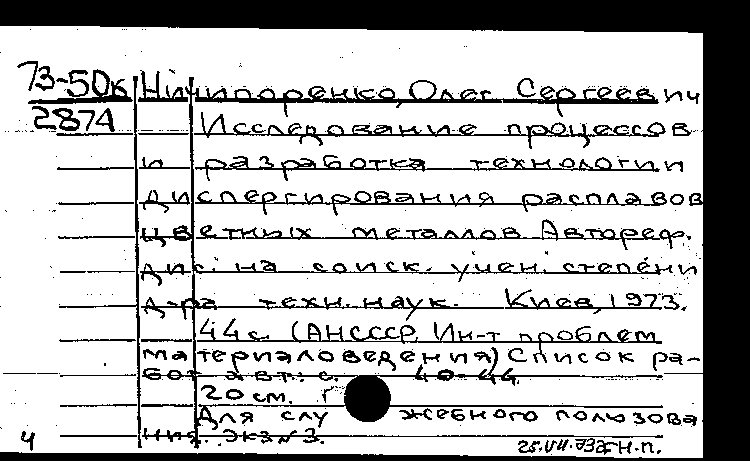 73-50к Ничипоренко, Олег Сергеевич
2874 Исследование процессов
и разработка технологии
диспергирования расплавов
цветных металлов Автореф.
дис. на соиск. учен. степени
д-ра техн. наук. Киев, 1973.
44с. (АНСССР. Ин-т проблем
материаловедения) Список ра-
бот авт.: с. 40-44.
20 см.
Для слу жебного пользова
ния. экз№3.
4 25.VII.73г Н.П.